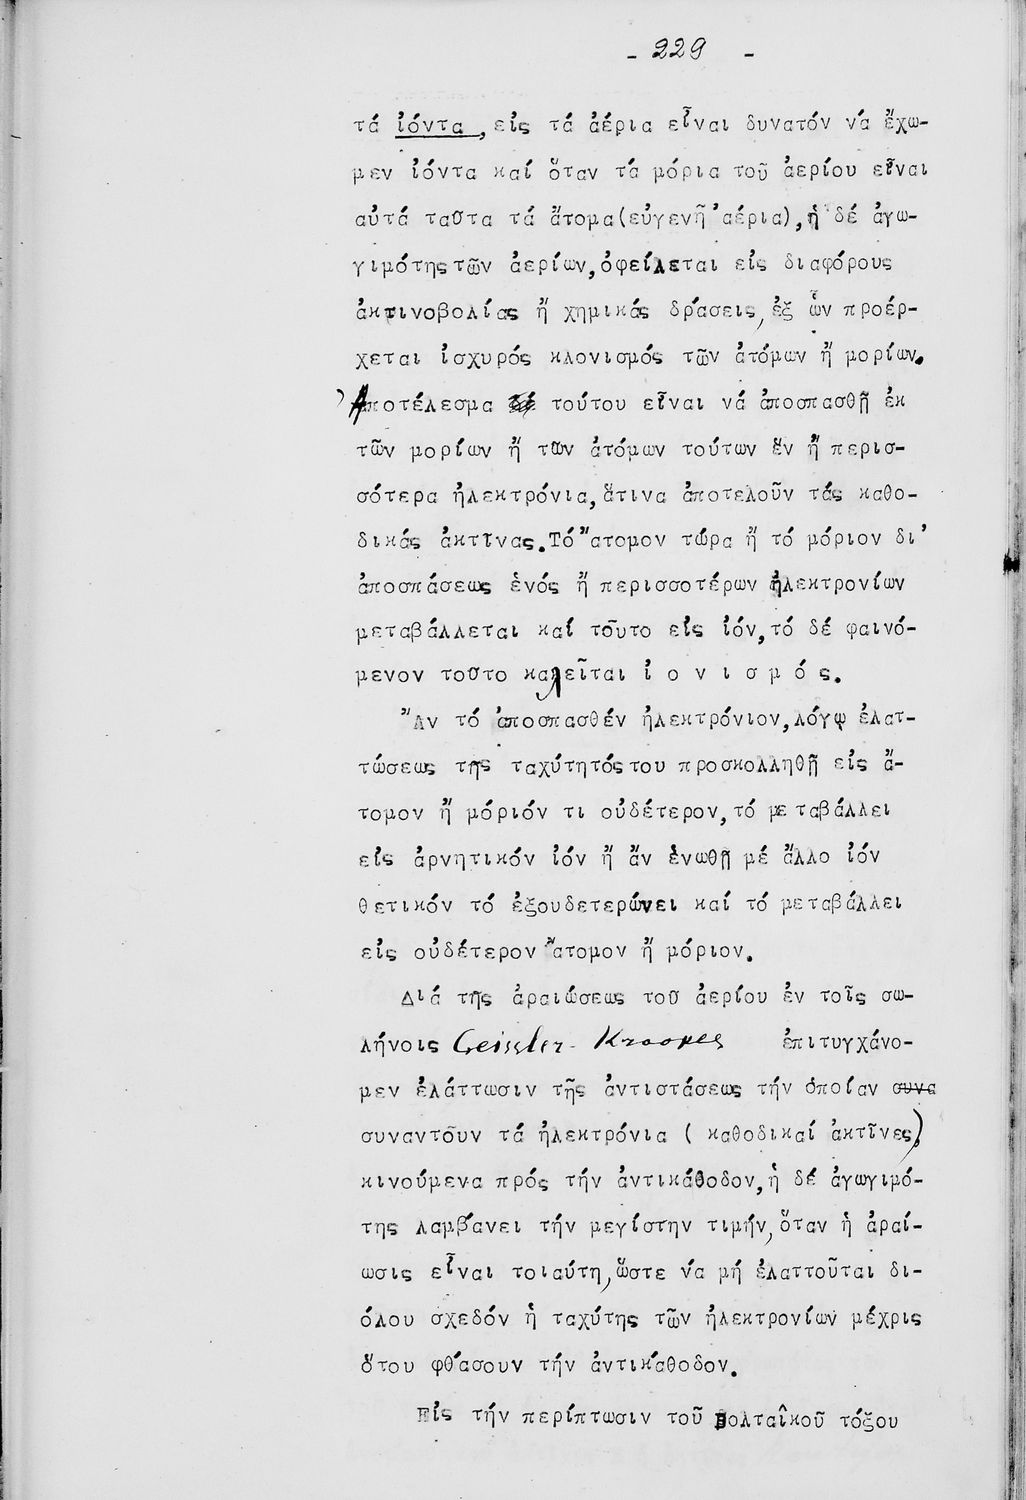 - 229 -
τά ἰόντα, εἰς τά ἀέρια εἶναι δυνατόν νά ἔχω-
μεν ἰόντα καί ὅταν τά μόρια τοῦ ἀερίου εἶναι
αὐτά ταῦτα τά ἄτομα (εὐγενῆ ἀέρια), ἡ δέ ἀγω-
γιμότης τῶν ἀερίων, ὀφείλεται εἰς διαφόρους
ἀκτινοβολίας ἤ χημικάς δράσεις, ἐξ ὧν προέρ-
χεται ἰσχυρός κλονισμός τῶν ἀτόμων ἤ μορίων.
Ἀποτέλεσμα τούτου εἶναι νά ἀποσπασθῇ ἐκ
τῶν μορίων ἤ τῶν ἀτόμων τούτων ἕν ἤ περισ-
σότερα ἠλεκτρόνια, ἅτινα ἀποτελοῦν τάς καθο-
δικάς ἀκτῖνας. Τό ἄτομον τώρα ἤ τό μόριον δι'
ἀποσπάσεως ἑνός ἤ περισσοτέρων ἠλεκτρονίων
μεταβάλλεται καί τοῦτο εἰς ἰόν, τό δέ φαινό-
μενον τοῦτο καλεῖται ἰ ο ν ι σ μ ό ς.
Ἄν τό ἀποσπασθέν ἠλεκτρόνιον, λόγῳ ἐλατ-
τώσεως τῆς ταχύτητός του προσκολληθῇ εἰς ἄ-
τομον ἤ μόριόν τι οὐδέτερον, τό μεταβάλλει
εἰς ἀρνητικόν ἰόν ἤ ἄν ἑνωθῇ μέ ἄλλο ἰόν
θετικόν τό ἐξουδετερώνει καί τό μεταβάλλει
εἰς οὐδέτερον ἄτομον ἤ μόριον.
Διά τῆς ἀραιώσεως τοῦ ἀερίου ἐν τοῖς σω-
λήνοις Geissler - Krookes ἐπιτυγχάνο-
μεν ἐλάττωσιν τῆς ἀντιστάσεως τήν ὁποίαν συνα
συναντοῦν τά ἠλεκτρόνια ( καθοδικαί ἀκτῖνες)
κινούμενα πρός τήν ἀντικάθοδον, ἡ δέ ἀγωγιμό-
της λαμβάνει τήν μεγίστην τιμήν, ὅταν ἡ ἀραί-
ωσις εἶναι τοιαύτη, ὥστε νά μή ἐλαττοῦται δι-
όλου σχεδόν ἡ ταχύτης τῶν ἠλεκτρονίων μέχρις
ὅτου φθάσουν τήν ἀντικάθοδον.
Εἰς τήν περίπτωσιν τοῦ βολταϊκοῦ τόξου